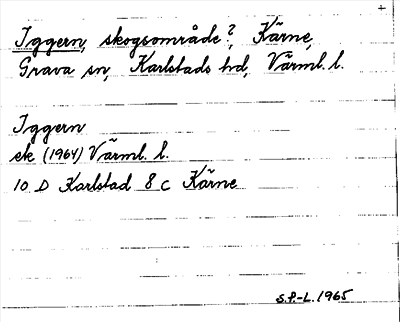 +
Iggern, skogsområde?, Kärne,
Grava sn, Karlstads hd, Värml. l.
Iggern
ek (1964) Värml. l.
10 D Karlstad 8 c Kärne
S.P.-L. 1965